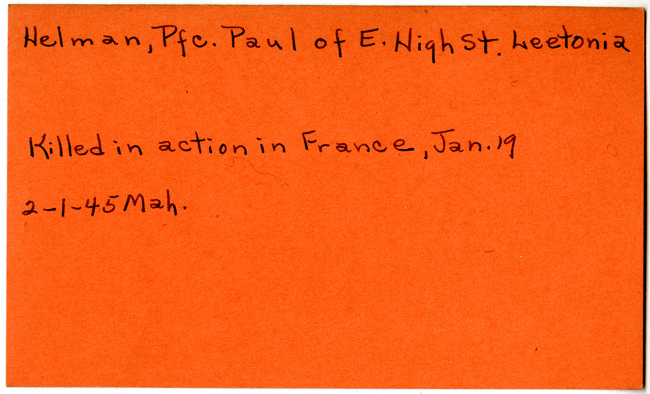 Helman, Pfc. Paul of E. High St. Leetonia
Killed in action in France, Jan. 19
2-1-45 Mah.